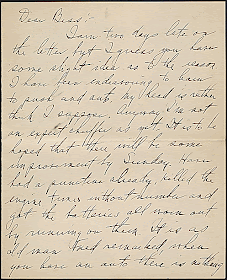 Dear Bess:-
I am two days late on
the letter but I guess you have
some slight idea as to the reason
I have been endeavoring to learn
to push said auto. My head is rather
thick I suppose. Anyway I'm not
an expert chauffer as yet. It is to be
hoped that there will be some
improvement by Sunday. Have
had a puncture already, killed the
engine times without number and
got the batteries all worn out
by running on them. It is as
old man Ford remarked when
you have an auto there is nothing